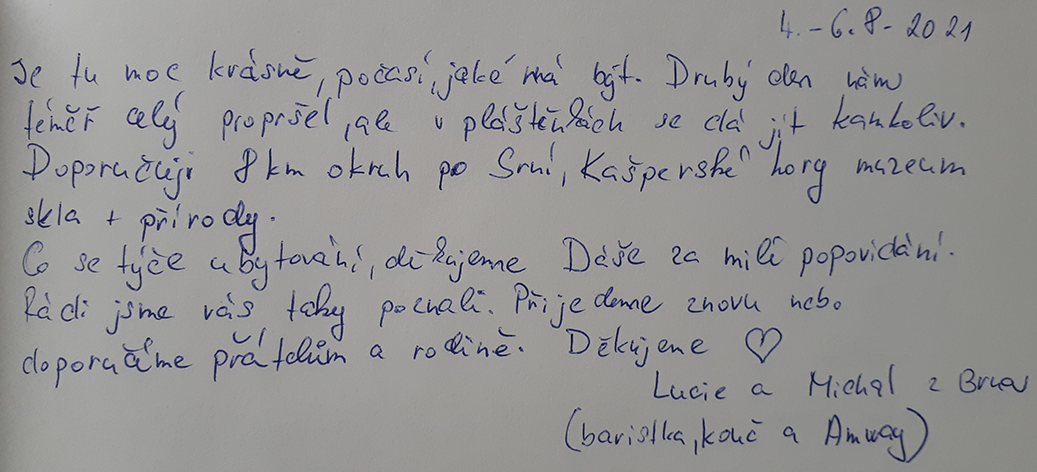 4. - 6. 8. 2021
Je tu moc krásně, počasí, jaké má být. Druhý den nám
téměř celý propršel, ale v pláštěnkách se dá jít kamkoliv.
Doporučuji 8 km okruh po Srní, Kašperské hory muzeum
skla + přírody.
Co se týče ubytování, děkujeme Dáše za milé popovídání.
Rádi jsme vás taky poznali. Přijedeme znovu nebo
doporučíme přátelům a rodině. Děkujeme ♡
Lucie a Michal z Brna
(baristka, kouč a Amway)